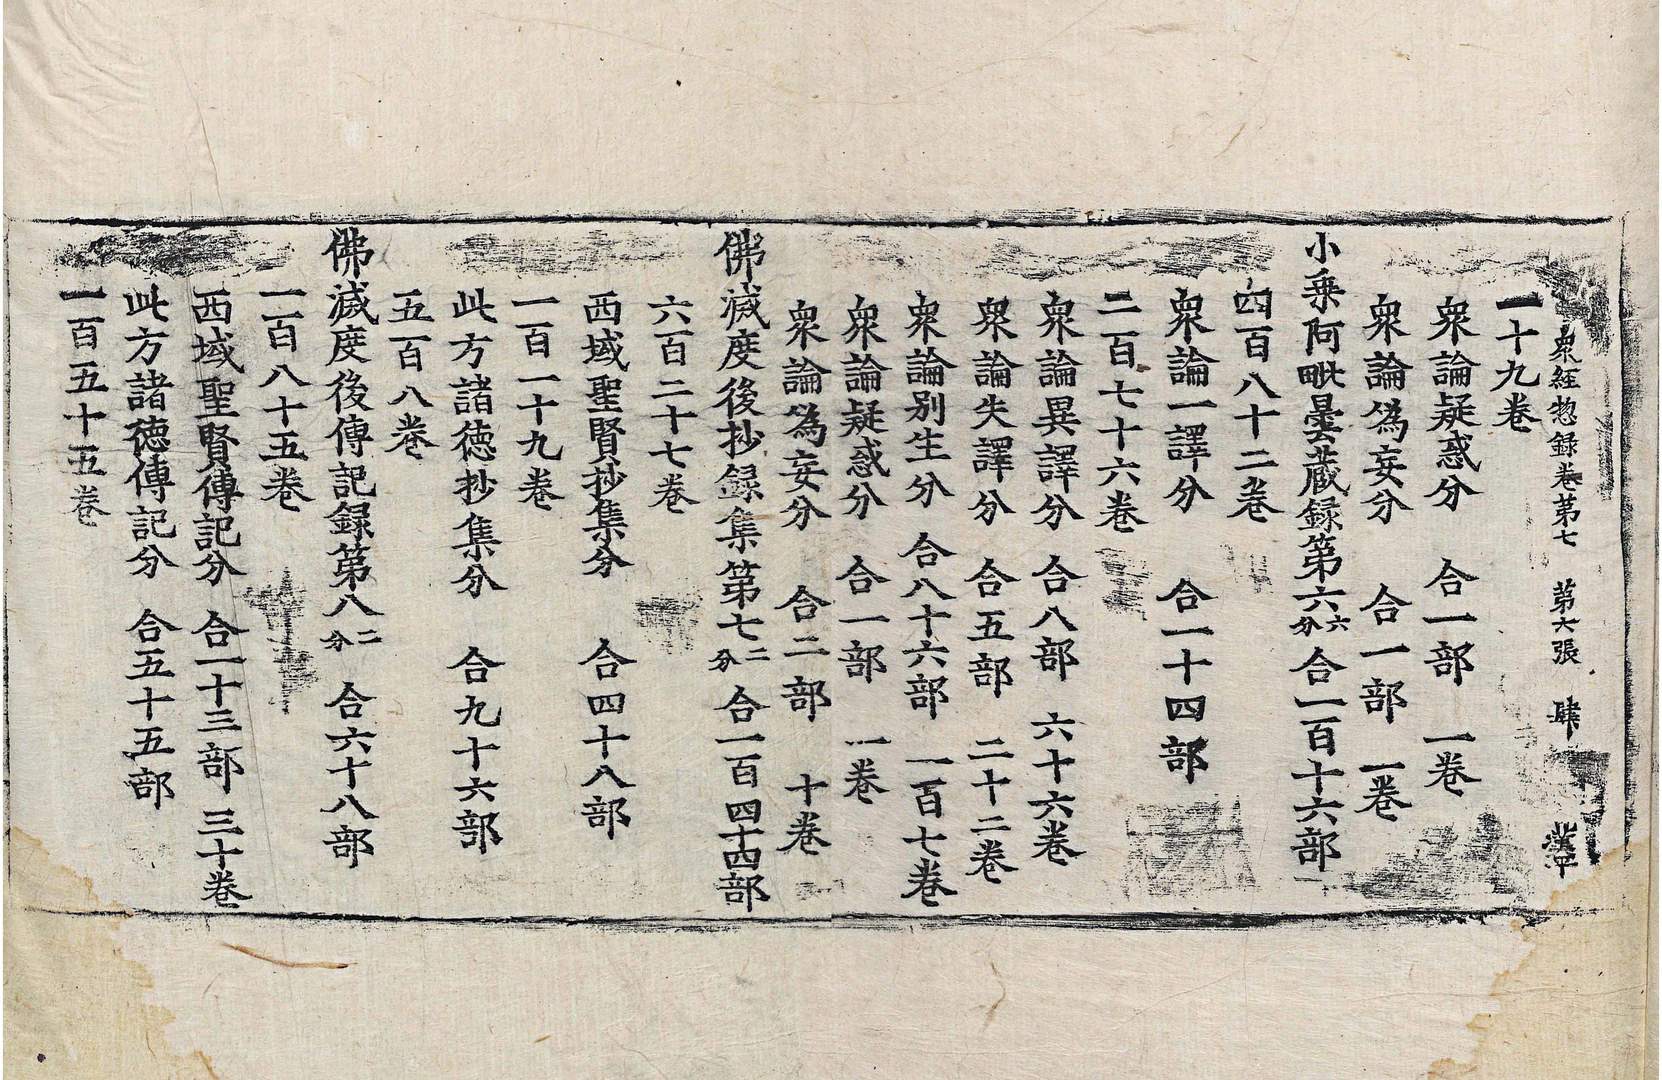 衆経惣録卷第七 第六張 肆
一十九卷
衆論疑惑分 合一部 一卷
衆論偽妄分 合一部 一卷
小乗阿毗曇藏録第六六分合一百十六部
四百八十二卷
衆論一譯分 合一十四部
二百七十六卷
衆論異譯分 合八部 六十六卷
衆論失譯分 合五部 二十二卷
衆論別生分 合八十六部 一百七卷
衆論疑惑分 合一部 一卷
衆論偽妄分 合二部 十卷
佛滅度後抄録集第七二分合一百四十四部
六百二十七卷
西域聖賢抄集分 合四十八部
一百一十九卷
此方諸徳抄集分 合九十六部
五百八卷
佛滅度後傳記録第八二分 合六十八部
一百八十五卷
西域聖賢傳記分 合一十三部 三十卷
此方諸徳傳記分 合五十五部
一百五十五卷